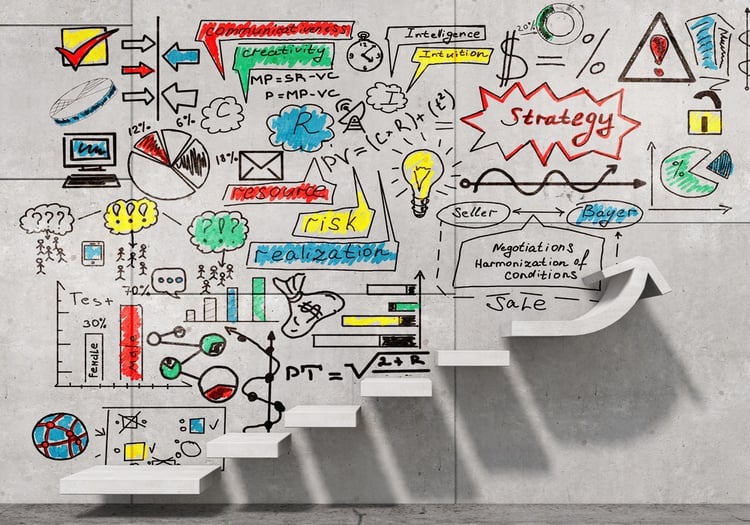 communicativeness
creativity
MP=SR-VC
P=MP-VC
Intelligence
Intuition
20%
$ = %
Strategy
12%
6%
18%
C
R
I
PV=(C×R)+(t²)
%
resource
risk
realization
Seller
Bayer
Negotiations
Harmonization of
conditions
Sale
???
?!?
?!?
...
Test
70%
30%
Female
Male
$
PT=√2+R